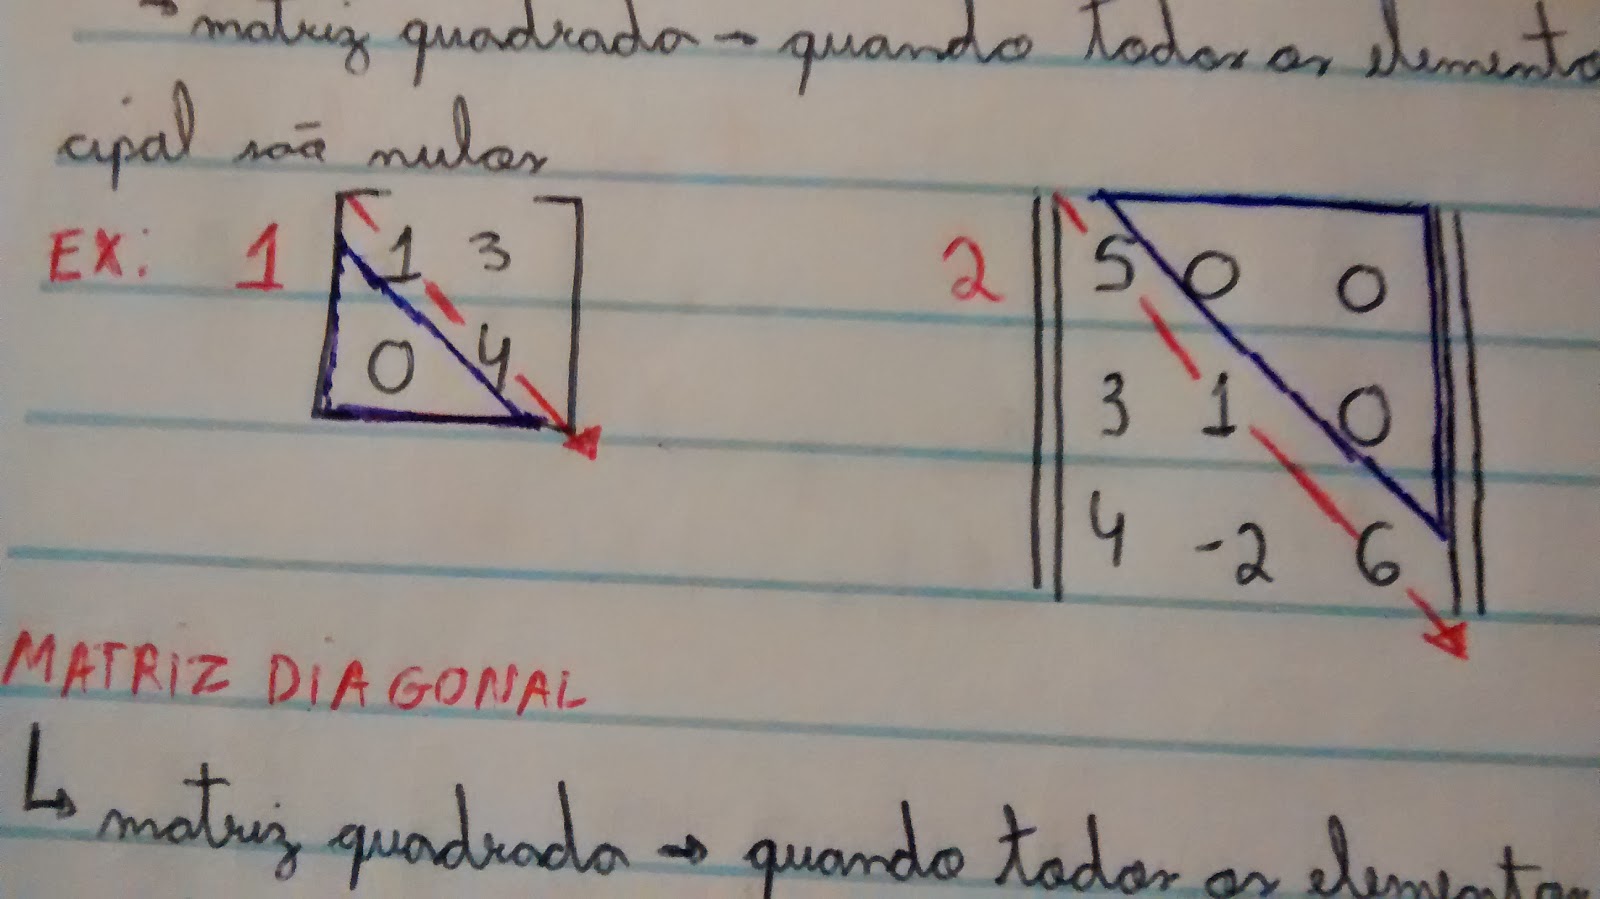 matriz quadrada → quando todos os elemento
cipal são nulos
EX: 1 [1 3
0 4]
2 ||5 0 0
3 1 0
4 -2 6||
MATRIZ DIAGONAL
↳ matriz quadrada → quando todos os elementos